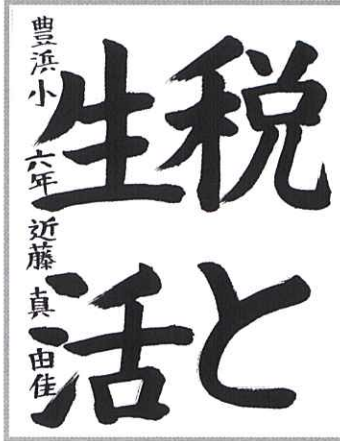 税と
生活
豊浜小 六年 近藤 真由佳